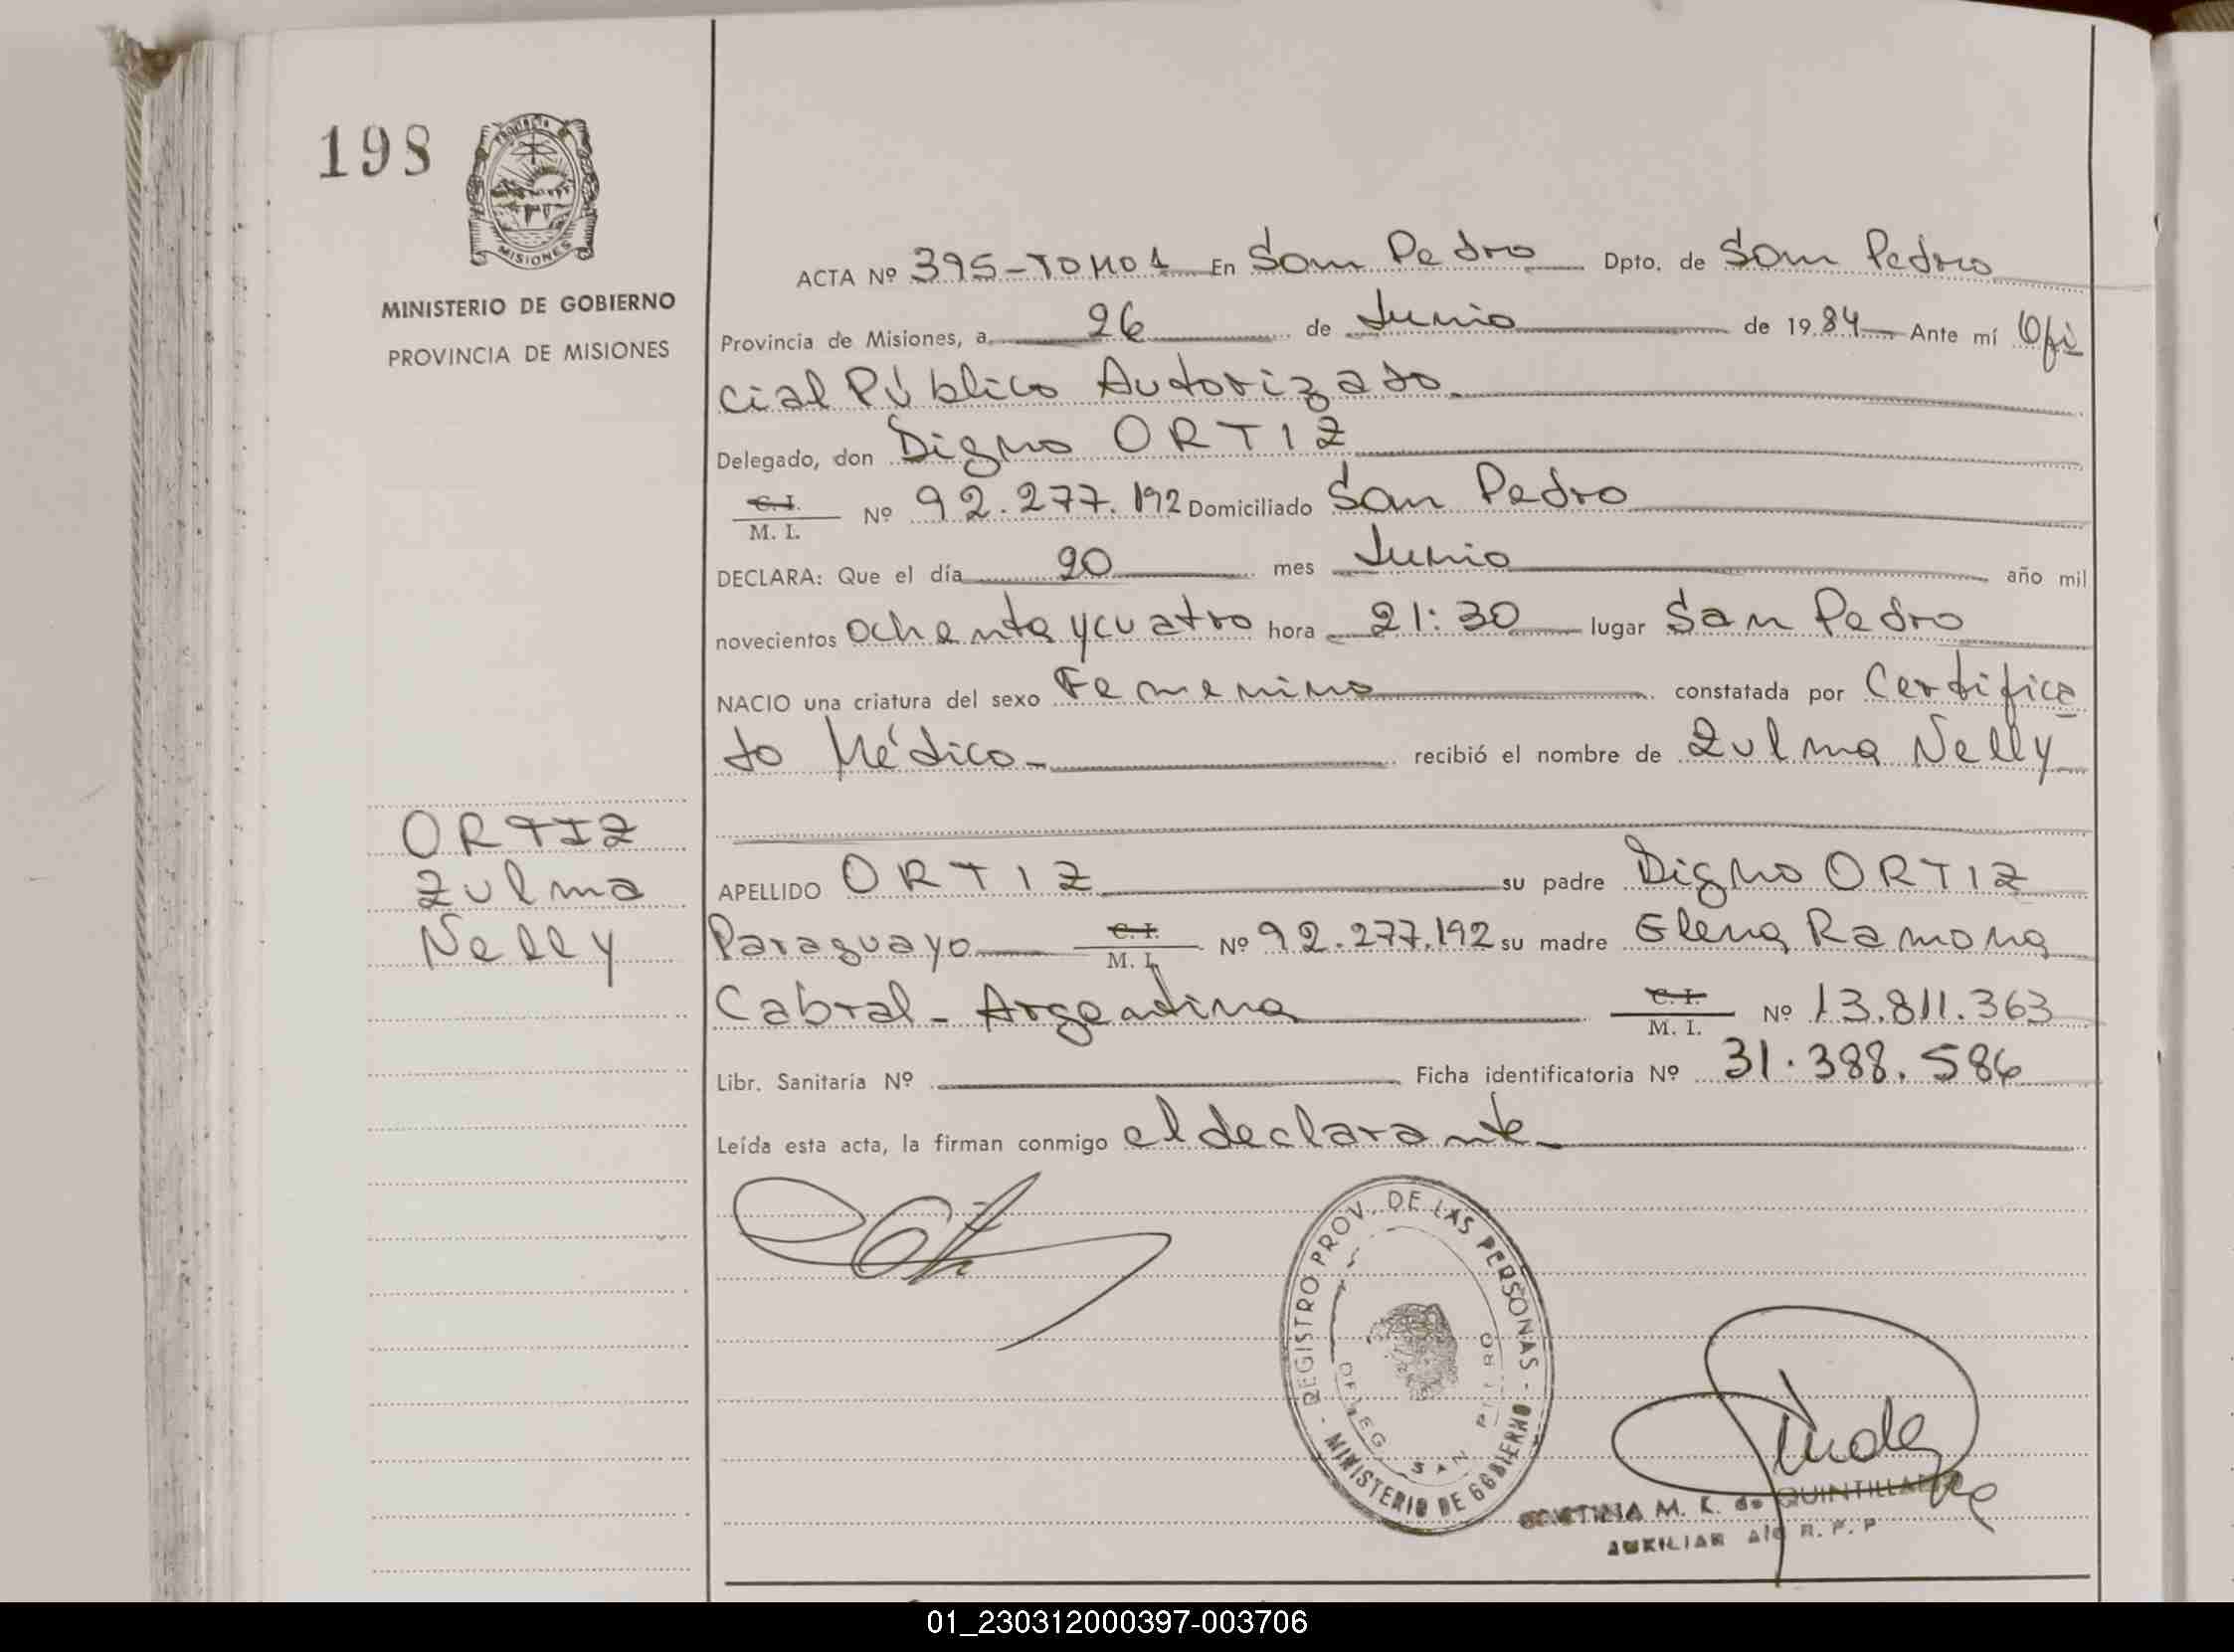 198
PROVINCIA
MISIONES
MINISTERIO DE GOBIERNO
PROVINCIA DE MISIONES
ORTIZ
Zulma
Nelly
ACTA Nº 395-TOMO 1 En San Pedro Dpto. de San Pedro
Provincia de Misiones, a 26 de Junio de 1984 Ante mí Ofi
cial Público Autorizado
Delegado, don Digno ORTIZ
C.I. M. I. Nº 92.277.192 Domiciliado San Pedro
DECLARA: Que el día 20 mes Junio año mil
novecientos ochenta y cuatro hora 21:30 lugar San Pedro
NACIO una criatura del sexo Femenino constatada por Certifica
do Médico- recibió el nombre de Zulma Nelly
APELLIDO ORTIZ su padre Digno ORTIZ
Paraguayo C.I. M. I. Nº 92.277.192 su madre Elena Ramona
Cabral - Argentina C.I. M. I. Nº 13.811.363
Libr. Sanitaría Nº Ficha identificatoria Nº 31.388.586
Leída esta acta, la firman conmigo el declarante-
REGISTRO PROV. DE LAS PERSONAS - MINISTERIO DE GOBIERNO -
DELEG. SAN PEDRO
M. K. de QUINTILLA
AUXILIAR A/C R. P. P
01_230312000397-003706